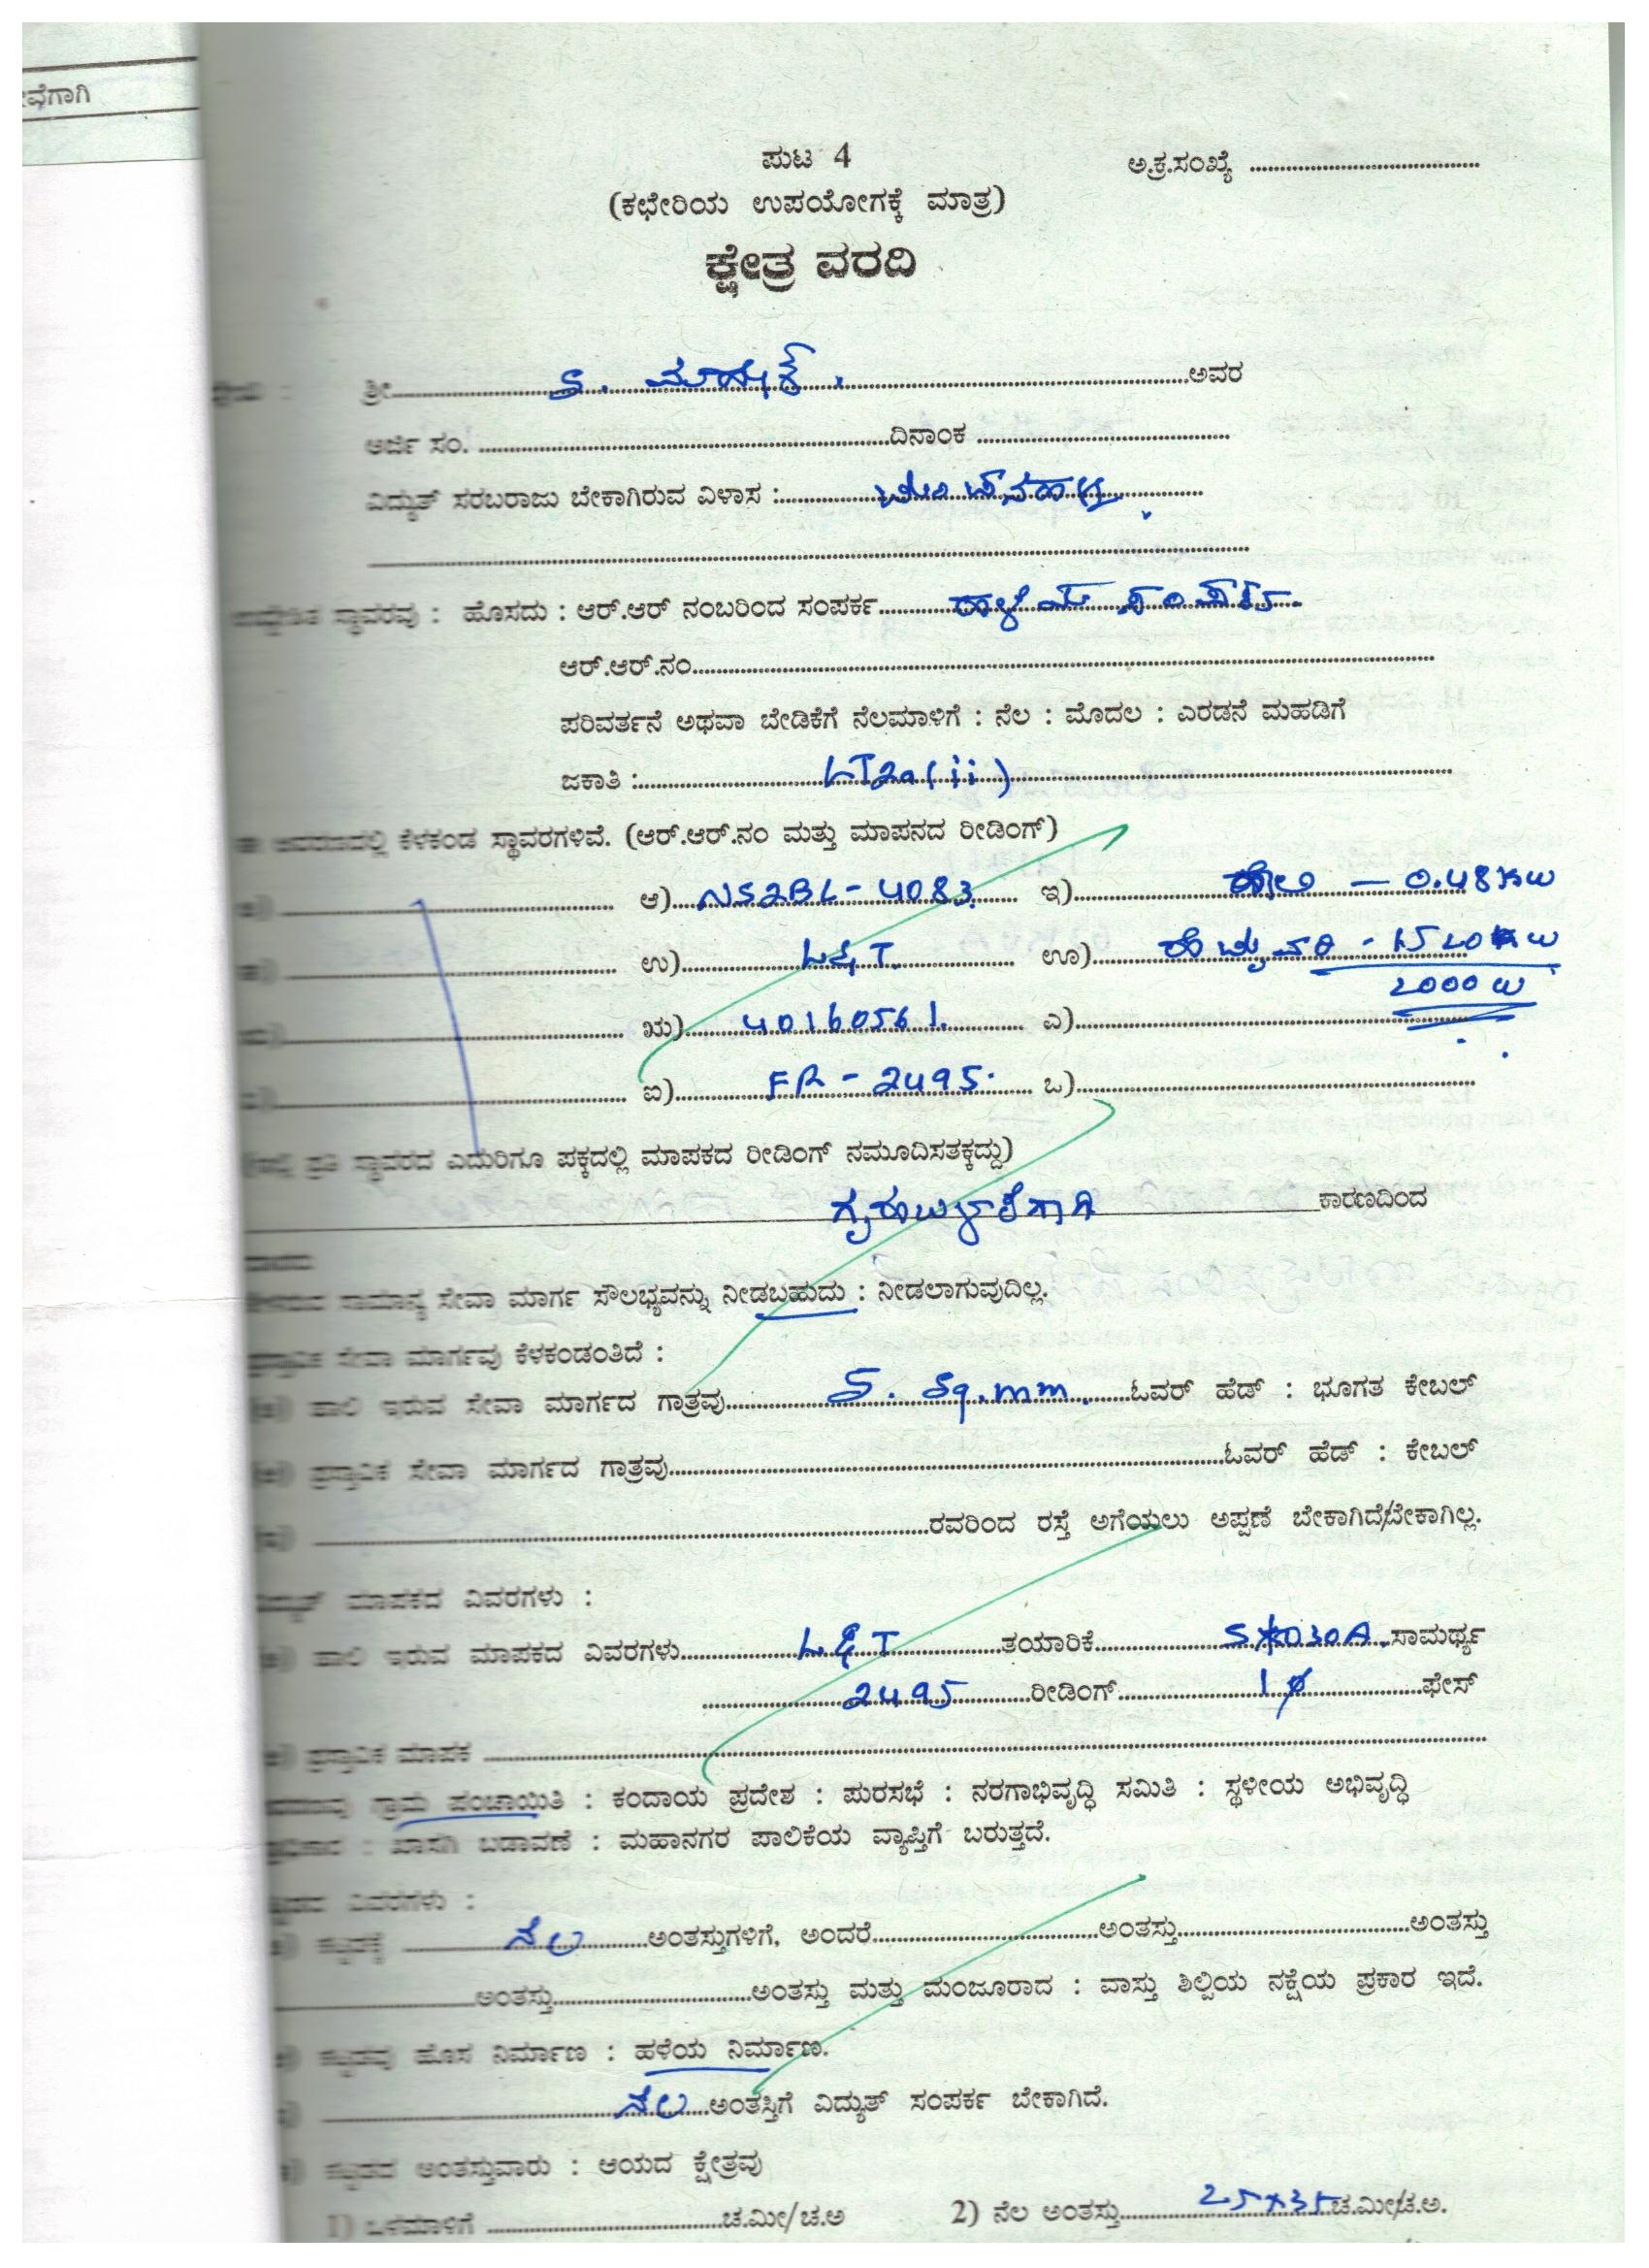 ವೆಗಾಗಿ
ಪುಟ 4
ಅ.ಕ್ರ.ಸಂಖ್ಯೆ ........
(ಕಛೇರಿಯ ಉಪಯೋಗಕ್ಕೆ ಮಾತ್ರ)
ಕ್ಷೇತ್ರ ವರದಿ
ಶ್ರೀ........ಅವರ
ಅರ್ಜಿ ಸಂ. ........ದಿನಾಂಕ ........
ವಿದ್ಯುತ್ ಸರಬರಾಜು ಬೇಕಾಗಿರುವ ವಿಳಾಸ :........
ಸ್ಥಾವರವು : ಹೊಸದು : ಆರ್.ಆರ್ ನಂಬರಿಂದ ಸಂಪರ್ಕ........ಹಳೆಯ ಸಂಪರ್ಕ
ಆರ್.ಆರ್.ನಂ........
ಪರಿವರ್ತನೆ ಅಥವಾ ಬೇಡಿಕೆಗೆ ನೆಲಮಾಳಿಗೆ : ನೆಲ : ಮೊದಲ : ಎರಡನೆ ಮಹಡಿಗೆ
ಜಕಾತಿ :........LT2a(ii)........
ಈ ಆವರಣದಲ್ಲಿ ಕೆಳಕಂಡ ಸ್ಥಾವರಗಳಿವೆ. (ಆರ್.ಆರ್.ನಂ ಮತ್ತು ಮಾಪನದ ರೀಡಿಂಗ್)
ಆ)....NS2BL-4083.... ಇ)........ಹಾಲಿ - 0.48KW
ಉ)........L&T........ ಊ)........ಹೆಚ್ಚುವರಿ - 1520W
2000W
ಋ)....40160561.... ಎ)........
ಐ)....FR - 2495.... ಒ)........
(ಇಲ್ಲಿ ಪ್ರತಿ ಸ್ಥಾವರದ ಎದುರಿಗೂ ಪಕ್ಕದಲ್ಲಿ ಮಾಪಕದ ರೀಡಿಂಗ್ ನಮೂದಿಸತಕ್ಕದ್ದು)
ಗೃಹಬಳಕೆಗಾಗಿ ಕಾರಣದಿಂದ
ಸಾಮಾನ್ಯ ಸೇವಾ ಮಾರ್ಗ ಸೌಲಭ್ಯವನ್ನು ನೀಡಬಹುದು : ನೀಡಲಾಗುವುದಿಲ್ಲ.
ಪ್ರಸ್ತಾವಿತ ಸೇವಾ ಮಾರ್ಗವು ಕೆಳಕಂಡಂತಿದೆ :
(ಅ) ಹಾಲಿ ಇರುವ ಸೇವಾ ಮಾರ್ಗದ ಗಾತ್ರವು........5. Sq.mm........ಓವರ್ ಹೆಡ್ : ಭೂಗತ ಕೇಬಲ್
(ಆ) ಪ್ರಸ್ತಾವಿಕ ಸೇವಾ ಮಾರ್ಗದ ಗಾತ್ರವು........ಓವರ್ ಹೆಡ್ : ಕೇಬಲ್
(ಇ) ........ರವರಿಂದ ರಸ್ತೆ ಅಗೆಯಲು ಅಪ್ಪಣೆ ಬೇಕಾಗಿದೆ/ಬೇಕಾಗಿಲ್ಲ.
ವಿದ್ಯುತ್ ಮಾಪಕದ ವಿವರಗಳು :
ಅ) ಹಾಲಿ ಇರುವ ಮಾಪಕದ ವಿವರಗಳು........L&T........ತಯಾರಿಕೆ........ಸಾಮರ್ಥ್ಯ
........2495........ರೀಡಿಂಗ್........1ø........ಫೇಸ್
ಆ) ಪ್ರಸ್ತಾವಿಕ ಮಾಪಕ ........
ಗ್ರಾಮ ಪಂಚಾಯಿತಿ : ಕಂದಾಯ ಪ್ರದೇಶ : ಪುರಸಭೆ : ನರಗಾಭಿವೃದ್ಧಿ ಸಮಿತಿ : ಸ್ಥಳೀಯ ಅಭಿವೃದ್ಧಿ
ಪ್ರಾಧಿಕಾರ : ಖಾಸಗಿ ಬಡಾವಣೆ : ಮಹಾನಗರ ಪಾಲಿಕೆಯ ವ್ಯಾಪ್ತಿಗೆ ಬರುತ್ತದೆ.
ಕಟ್ಟಡದ ವಿವರಗಳು :
ಅ) ಕಟ್ಟಡಕ್ಕೆ ........ನೆಲ........ಅಂತಸ್ತುಗಳಿಗೆ, ಅಂದರೆ........ಅಂತಸ್ತು........ಅಂತಸ್ತು
........ಅಂತಸ್ತು........ಅಂತಸ್ತು ಮತ್ತು ಮಂಜೂರಾದ : ವಾಸ್ತು ಶಿಲ್ಪಿಯ ನಕ್ಷೆಯ ಪ್ರಕಾರ ಇದೆ.
ಆ) ಕಟ್ಟಡವು ಹೊಸ ನಿರ್ಮಾಣ : ಹಳೆಯ ನಿರ್ಮಾಣ.
........ನೆಲ....ಅಂತಸ್ತಿಗೆ ವಿದ್ಯುತ್ ಸಂಪರ್ಕ ಬೇಕಾಗಿದೆ.
ಕಟ್ಟಡದ ಅಂತಸ್ತುವಾರು : ಆಯದ ಕ್ಷೇತ್ರವು
1) ಒಳಮಾಳಿಗೆ ........ಚ.ಮೀ/ಚ.ಅ 2) ನೆಲ ಅಂತಸ್ತು........25x35 ಚ.ಮೀ/ಚ.ಅ.